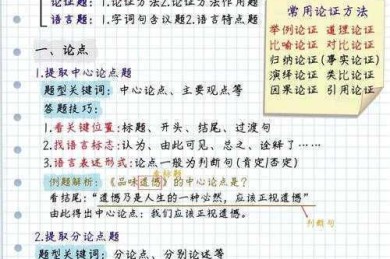 论证题：1.论证方法2.论证方法作用题
语言题：1.字词句含议题2.语言特点题
常用论证方法
举例论证 道理论证
比喻论证 对比论证
归纳论证(事实论证)
演绎论证 类比论证
因果论证 引用论证
一、论点
1.提取中心论点题
题型关键词：中心论点、主要观点等
答题技巧：
1.看关键位置:标题、开头、结尾、过渡句
2.找语言标志:认为、由此可见、总之、诠释了……
3.语言表述形式:论点一般为判断句(肯定/否定)
看标题
例题解析：《品味遗憾》的中心论点是？
看结尾:"遗憾乃是人生的一种必然，应该正视遗憾"
由此得出中心论点：我们应该正视遗憾。
判断句
2.提取分论点题
题型关键词：分论点、分别论述等